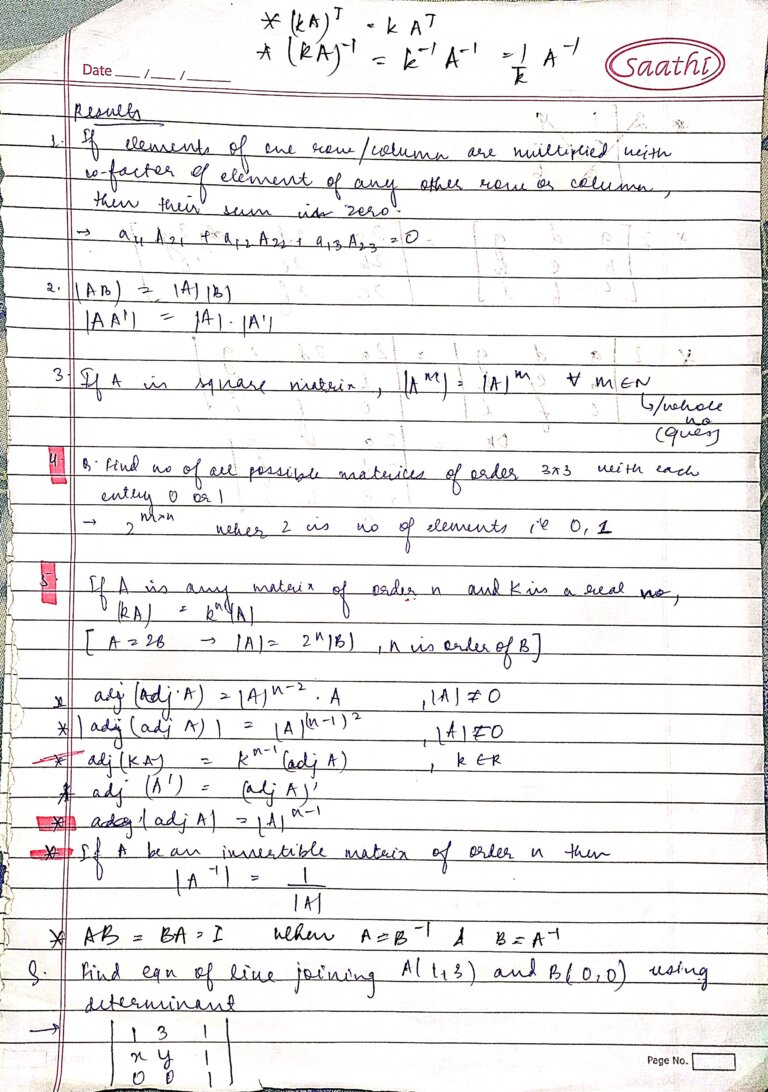 * (kA)ᵀ = k Aᵀ
* (kA)⁻¹ = k⁻¹ A⁻¹ = 1/k A⁻¹
Saathi
Date ___/___/_____
Results
1. If elements of one row/column are multiplied with
co-factor of element of any other row or column,
then their sum is zero.
→ a₁₁ A₂₁ + a₁₂ A₂₂ + a₁₃ A₂₃ = 0
2. |AB| = |A| |B|
|AA'| = |A|. |A'|
3. If A is square matrix, |Aᵐ| = |A|ᵐ ∀ m ∈ N
↳/whole
no
(ques)
4. Q. Find no of all possible materices of order 3×3 with each
entry 0 or 1
→ 2ᵐˣⁿ wher 2 is no of elements i.e 0, 1
5. If A is any matrix of order n and K is a real no,
|kA| = kⁿ|A|
[ A = 2B → |A| = 2ⁿ|B| , n is order of B]
* adj (Adj.A) = |A|ⁿ⁻² . A , |A| ≠ 0
* |adj (adj A)| = |A|^(n-1)² , |A| ≠ 0
* adj (KA) = kⁿ⁻¹ (adj A) , k ∈ R
* adj (A') = (adj A)'
* |adj A| = |A|ⁿ⁻¹
* If A be an invertible matrix of order n then
|A⁻¹| = 1/|A|
* AB = BA = I when A = B⁻¹ & B = A⁻¹
Q. Find eqn of line joining A(1,3) and B(0,0) using
determinant
→ | 1 3 1 |
| x y 1 |
| 0 0 1 |
Page No.